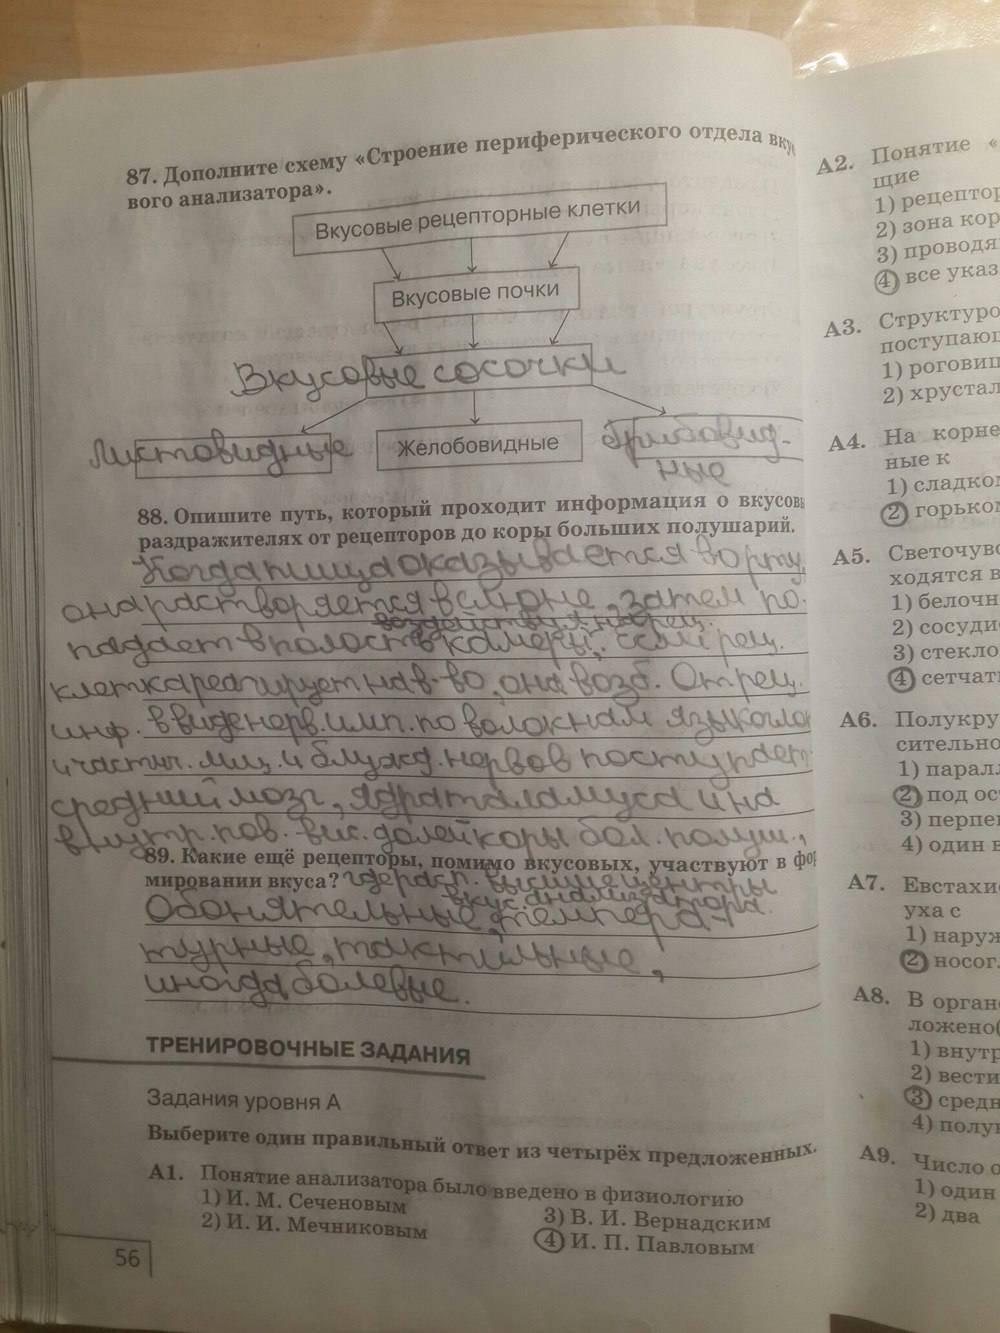 87. Дополните схему «Строение периферического отдела вку
вого анализатора».
Вкусовые рецепторные клетки
Вкусовые почки
Вкусовые сосочки
Листовидные
Желобовидные
Грибовид-
ные
88. Опишите путь, который проходит информация о вкусовы
раздражителях от рецепторов до коры больших полушарий.
Когда пища оказывается во рту,
она растворяется в слюне, затем по-
воздействуя на рец.
падает в полость камеры, если рец.
клетка реагирует на в-во, она возб. От рец.
инф. в виде нерв. имп. по волокнам языкогло
и частич. лиц. и блужд. нервов поступает
средний мозг, ядра таламуса и на
внутр. пов. вис. долей коры бол. полуш.,
89. Какие ещё рецепторы, помимо вкусовых, участвуют в фор
мировании вкуса? где расп. высшие центры
вкус. анализатора.
Обонятельные, темпера-
турные, тактильные,
иногда болевые.
ТРЕНИРОВОЧНЫЕ ЗАДАНИЯ
Задания уровня А
Выберите один правильный ответ из четырёх предложенных.
А1. Понятие анализатора было введено в физиологию
1) И. М. Сеченовым
2) И. И. Мечниковым
3) В. И. Вернадским
4) И. П. Павловым
56
А2. Понятие «
щие
1) рецептор
2) зона кор
3) проводя
4) все указ
А3. Структуро
поступающ
1) роговиц
2) хрустал
А4. На корне
ные к
1) сладком
2) горьком
А5. Светочувс
ходятся в
1) белочн
2) сосуди
3) стекло
4) сетчат
А6. Полукру
сительно
1) парал
2) под ос
3) перпе
4) один в
А7. Евстахие
уха с
1) наруж
2) носог
А8. В орган
ложено(
1) внутр
2) вести
3) средн
4) полу
А9. Число о
1) один
2) два